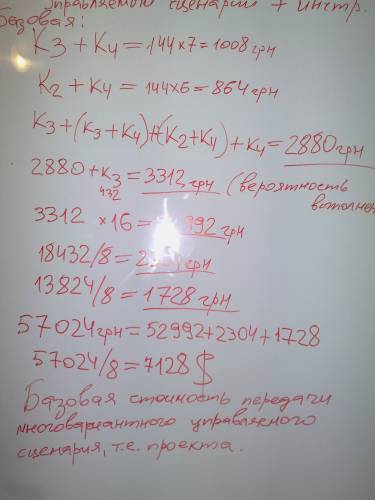 управляемого сценария + инстр.
Базовая:
К3 + К4 = 144×7 = 1008 грн
К2 + К4 = 144×6 = 864 грн
К3+(К3+К4)+(К2+К4)+К4 = 2880 грн
2880 + К3 = 3312 грн (вероятность
432 выполнен
3312 ×16 = 992 грн
18432/8 = грн
13824/8 = 1728 грн
57024 грн = 52992+2304+1728
57024/8 = 7128 $
Базовая стоимость передачи
многовариантного управляемого
сценария, т.е. проекта.